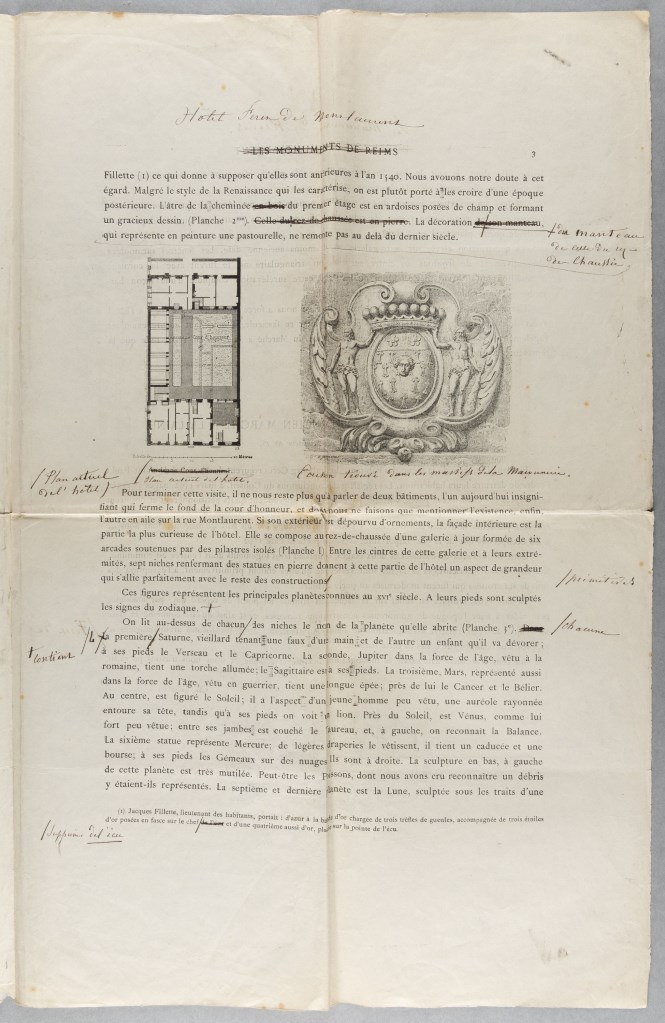 Hôtel Feret de Montlaurent
LES MONUMENTS DE REIMS
3
Fillette (1) ce qui donne à supposer qu'elles sont antérieures à l'an 1540. Nous avouons notre doute à cet
égard. Malgré le style de la Renaissance qui les caractérise, on est plutôt porté à les croire d'une époque
postérieure. L'âtre de la cheminée en bois du premier étage est en ardoises posées de champ et formant
un gracieux dessin. (Planche 2me). Celle du rez-de chaussée est en pierre. La décoration de son manteau,
qui représente en peinture une pastourelle, ne remonte pas au delà du dernier siècle.
du manteau
de celle du rez
de Chaussée
Plan actuel
de l'hôtel
Plan actuel de l'hôtel.
Ecusson trouvé dans les massifs de la Maçonnerie.
Pour terminer cette visite, il ne nous reste plus qu'à parler de deux bâtiments, l'un aujourd'hui insigni-
fiant qui ferme le fond de la cour d'honneur, et dont nous ne faisons que mentionner l'existence, enfin,
l'autre en aile sur la rue Montlaurent. Si son extérieur est dépourvu d'ornements, la façade intérieure est la
partie la plus curieuse de l'hôtel. Elle se compose au rez-de-chaussée d'une galerie à jour formée de six
arcades soutenues par des pilastres isolés (Planche I) Entre les cintres de cette galerie et à leurs extré-
mités, sept niches renfermant des statues en pierre donnent à cette partie de l'hôtel un aspect de grandeur
qui s'allie parfaitement avec le reste des constructions
primitives
Ces figures représentent les principales planètes connues au XVIe siècle. A leurs pieds sont sculptés
les signes du zodiaque.
On lit au-dessus de chacun des niches le nom de la planète qu'elle abrite (Planche 3e). Dans
chacune
contient
la première Saturne, vieillard tenant une faux d'une main et de l'autre un enfant qu'il va dévorer;
à ses pieds le Verseau et le Capricorne. La seconde, Jupiter dans la force de l'âge, vêtu à la
romaine, tient une torche allumée; le Sagittaire est à ses pieds. La troisième, Mars, représenté aussi
dans la force de l'âge, vêtu en guerrier, tient une longue épée; près de lui le Cancer et le Bélier.
Au centre, est figuré le Soleil; il a l'aspect d'un jeune homme peu vêtu, une auréole rayonnée
entoure sa tête, tandis qu'à ses pieds on voit le lion. Près du Soleil, est Vénus, comme lui
fort peu vêtue; entre ses jambes est couché le Taureau, et, à gauche, on reconnait la Balance.
La sixième statue représente Mercure; de légères draperies le vêtissent, il tient un caducée et une
bourse; à ses pieds les Gémeaux sur des nuages. Ils sont à droite. La sculpture en bas, à gauche
de cette planète est très mutilée. Peut-être les poissons, dont nous avons cru reconnaître un débris
y étaient-ils représentés. La septième et dernière planète est la Lune, sculptée sous les traits d'une
(1) Jacques Fillette, lieutenant des habitants, portait : d'azur à la bande d'or chargée de trois trèfles de gueules, accompagnée de trois étoiles
d'or posées en fasce sur le chef et d'une quatrième aussi d'or, placée sur la pointe de l'écu.
Supprimer de l'écu